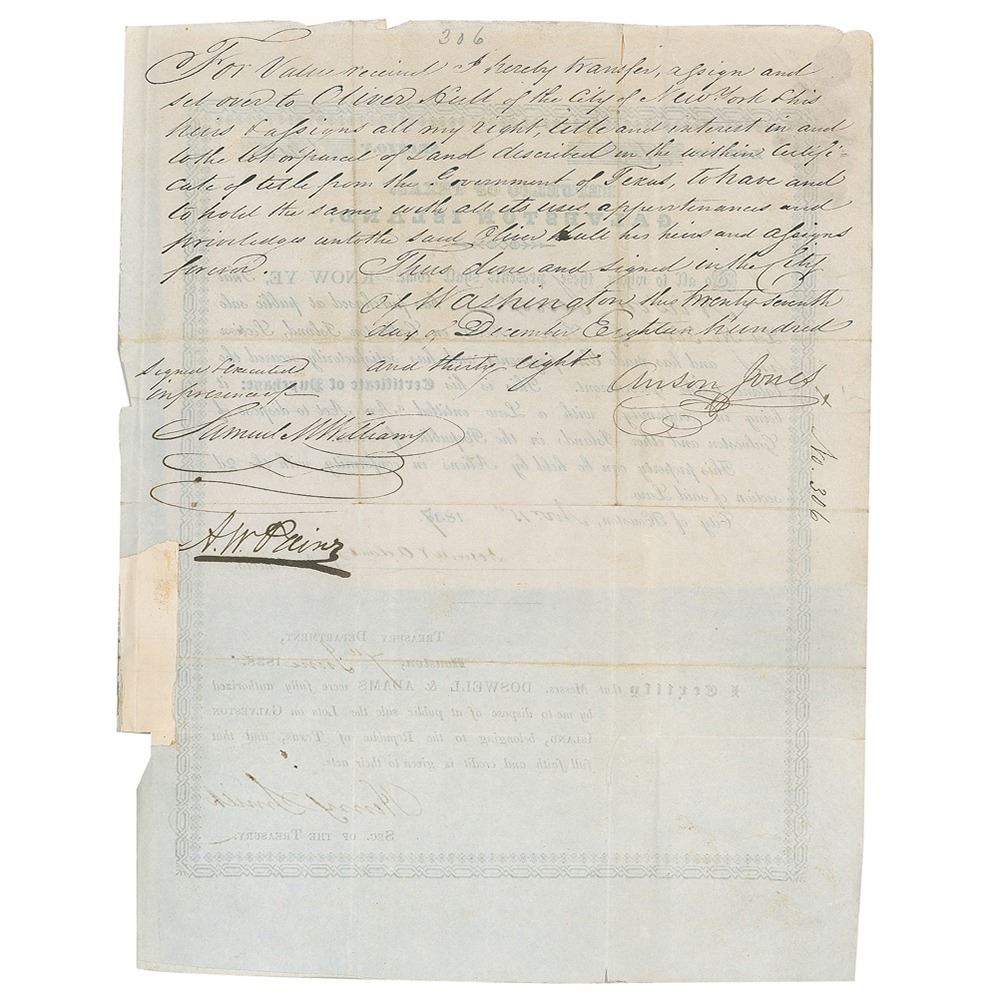 306
For Value received I hereby transfer, assign and
set over to Oliver Hull of the City of New York & his
heirs & assigns all my right, title and interest in and
to the lot or parcel of Land described in the within Certifi-
cate of title from the Government of Texas, to have and
to hold the same with all its uses appurtenances and
priviledges unto the said Oliver Hull his heirs and assigns
forever. Thus done and signed in the City
of Washington this twenty seventh
day of December Eighteen hundred
and thirty eight
Signed & executed
in presence of
Anson Jones
Samuel M Williams
No. 306
A. W. Paine
GALVESTON ISLAND
KNOW YE, That
Certificate of Purchase: it
This property can be held by Aliens in conformity with the 2d
section of said Law.
City of Houston, Nov. 1837.
TREASURY DEPARTMENT,
Houston, 1838.
I Certify that Messrs. DOSWELL & ADAMS were fully authorized
by me to dispose of at public sale the Lots on GALVESTON
ISLAND, belonging to the Republic of Texas, and that
full faith and credit is given to their acts.
Henry Smith
SEC. OF THE TREASURY.